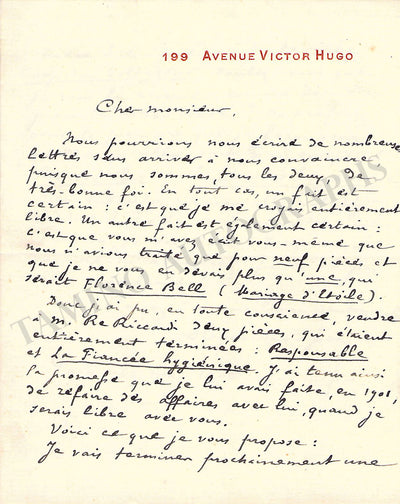 199 AVENUE VICTOR HUGO
Cher monsieur,
Nous pourrions nous écrire de nombreuses
lettres sans arriver à nous convaincre
puisque nous sommes, tous les deux, de
très-bonne foi. En tout cas, un fait est
certain : c'est que je me croyais entièrement
libre. Un autre fait est également certain :
c'est que vous m'avez écrit vous-même que
nous n'avions traité que pour neuf pièces et
que je ne vous en devais plus qu'une, qui
serait Florence Bell (Mariage d'Etoile).
Donc j'ai pu, en toute conscience, vendre
à M. Re Riccardi deux pièces, qui étaient
entièrement terminées : Responsable
et La Fiancée hygiénique. J'ai tenu ainsi
la promesse que je lui avais faite, en 1901,
de refaire des affaires avec lui, quand je
serais libre avec vous.
Voici ce que je vous propose :
Je vais terminer prochainement une
TAMINO AUTOGRAPHS